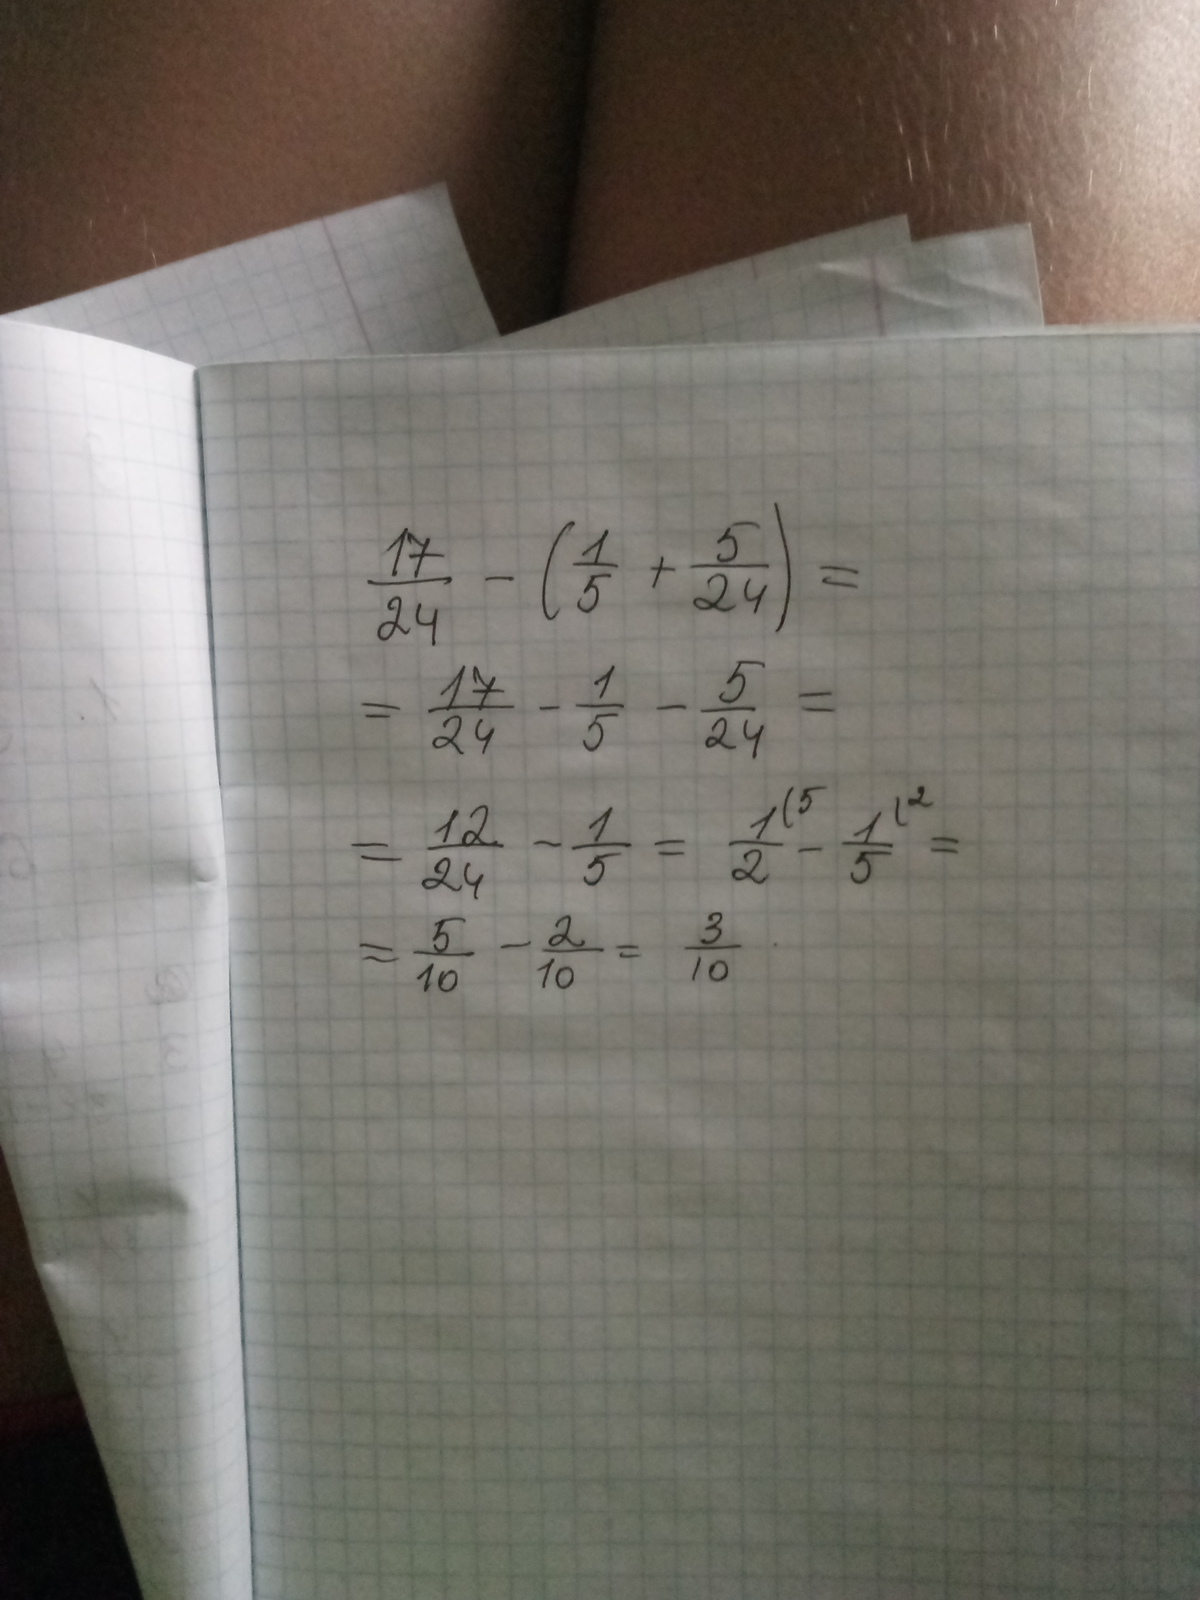 17/24 - (1/5 + 5/24) =
= 17/24 - 1/5 - 5/24 =
= 12/24 - 1/5 = 1(5/2 - 1(2/5 =
= 5/10 - 2/10 = 3/10